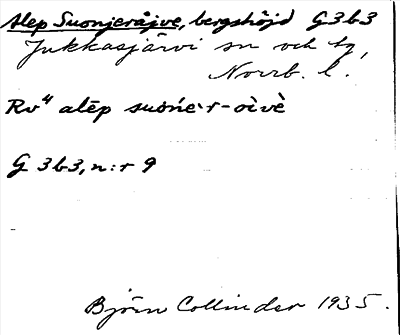 Alep Suonjeråjve, bergshöjd G3b3
Jukkasjärvi sn och tg,
Norrb. l.
Rv⁴ alēp suońe·r-oi̯vè
G 3b3, n:r 9
Björn Collinder 1935.